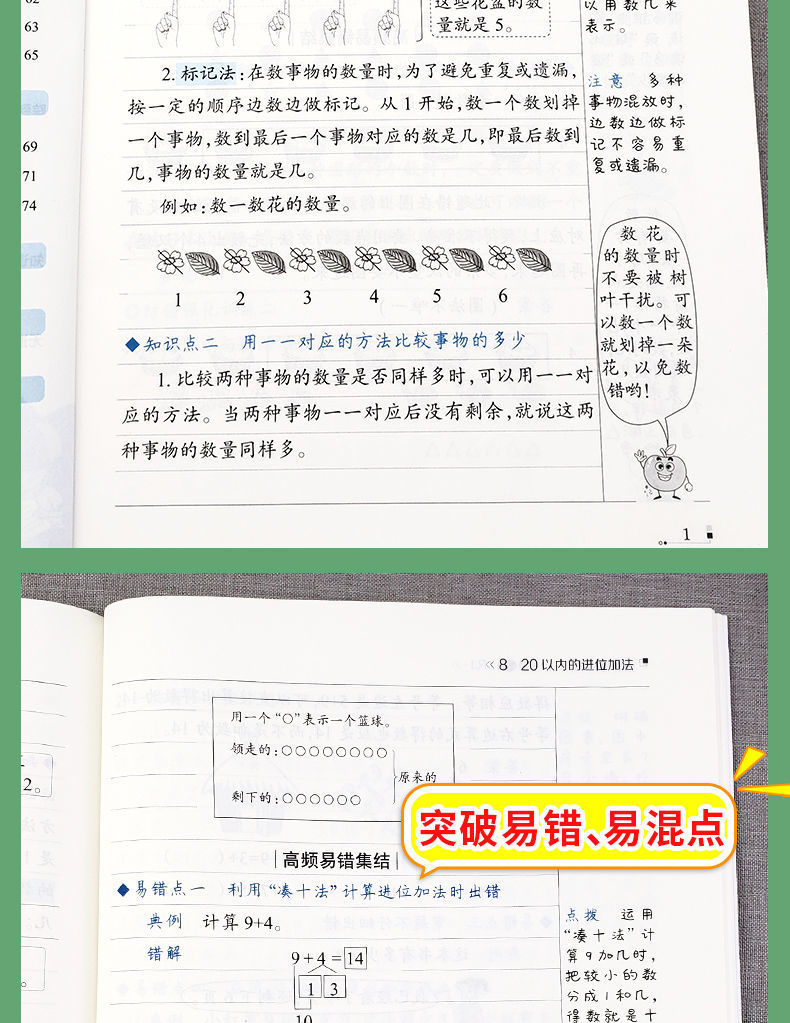 63
65
69
71
74
这些花盆的数
量就是 5。
以用数几来
表示。
2. 标记法:在数事物的数量时,为了避免重复或遗漏,
按一定的顺序边数边做标记。从 1 开始,数一个数划掉
一个事物,数到最后一个事物对应的数是几,即最后数到
几,事物的数量就是几。
例如:数一数花的数量。
注意 多种
事物混放时,
边数边做标
记不容易重
复或遗漏。
1 2 3 4 5 6
数花
的数量时
不要被树
叶干扰。可
以数一个数
就划掉一朵
花,以免数
错哟!
◆知识点二 用一一对应的方法比较事物的多少
1. 比较两种事物的数量是否同样多时,可以用一一对
应的方法。当两种事物一一对应后没有剩余,就说这两
种事物的数量同样多。
1
« 8 20 以内的进位加法
用一个“○”表示一个篮球。
领走的:○○○○○○○○○
原来的
剩下的:○○○○○○
2。
突破易错、易混点
高频易错集结
◆易错点一 利用“凑十法”计算进位加法时出错
典例 计算 9+4。
错解
9+4=14
1 3
10
点拨 运用
“凑十法”计
算 9 加几时,
把较小的数
分成 1 和几,
得数就是十